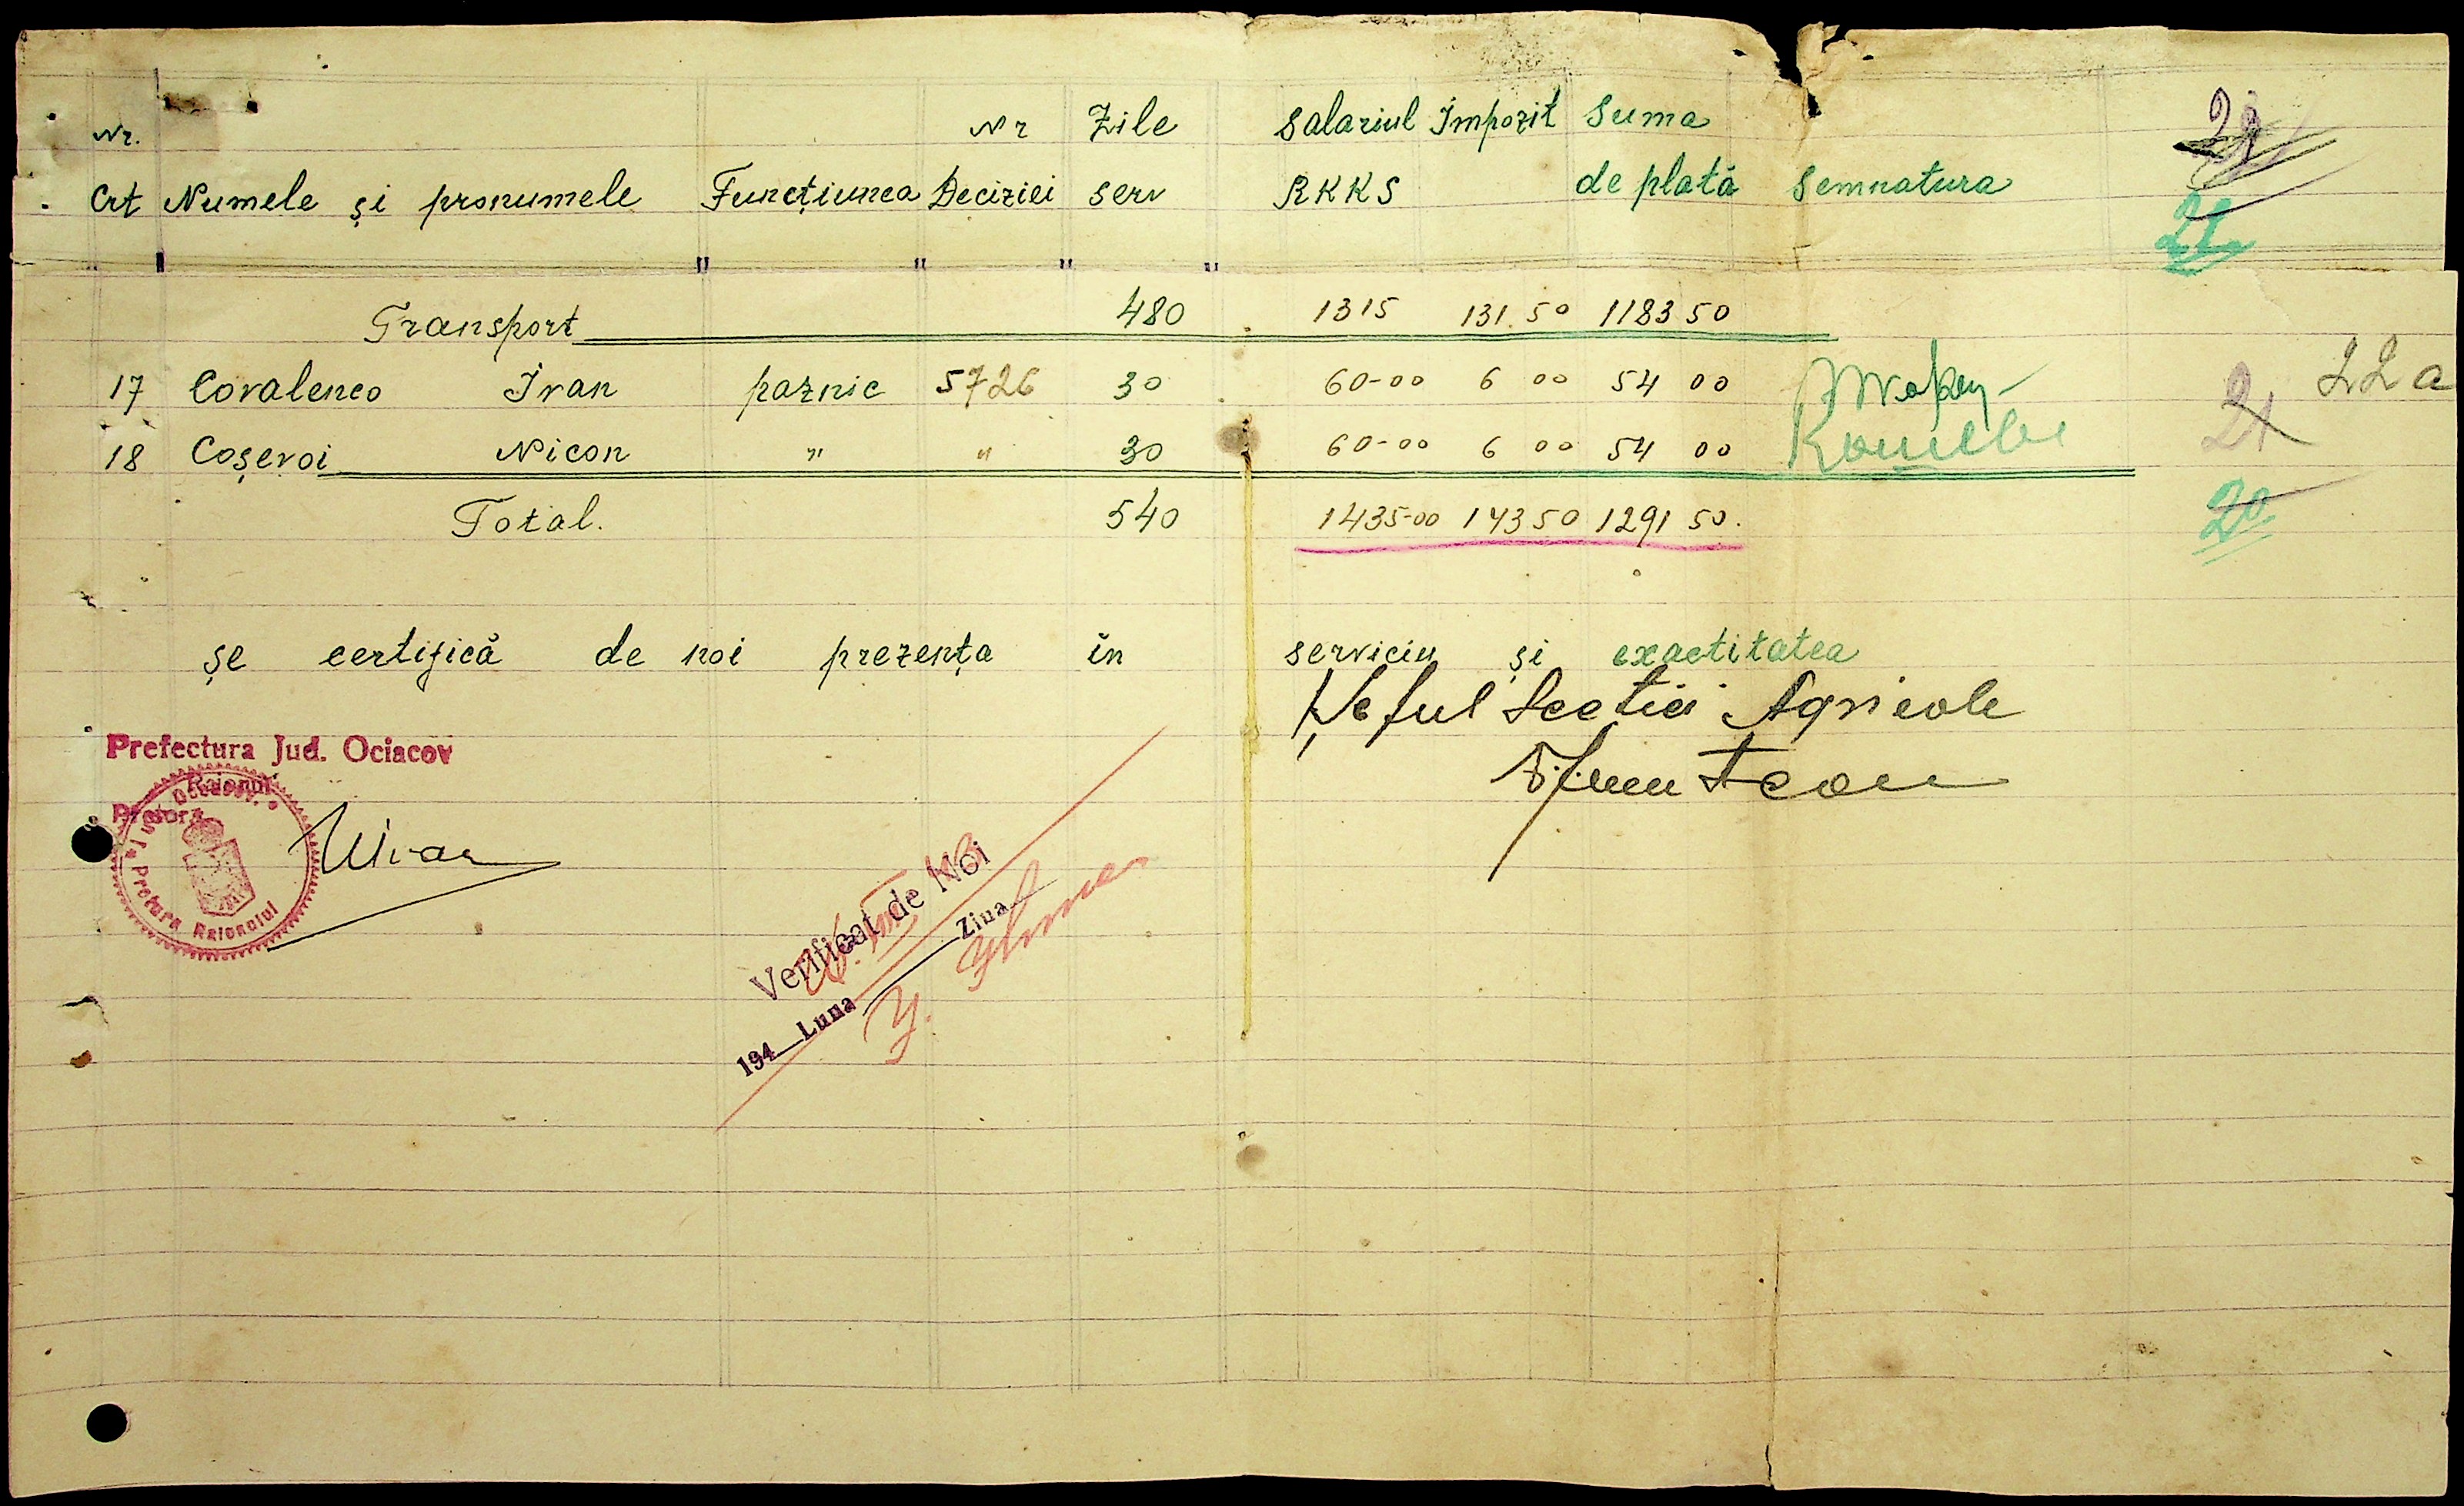 Nr. Nr Zile Salariul Impozit Suma
Crt Numele și pronumele Funcțiunea Deciziei serv RKKS de plată Semnatura
21
Transport 480 1315 131.50 1183 50
17 Covalenco Ivan paznic 5726 30 60-00 6 00 54 00
22a
21
18 Coșevoi Nicon " " 30 60-00 6 00 54 00
20
Total. 540 1435-00 143 50 1291 50.
șe certifică de noi prezența în serviciu și exactitatea
Șeful Sectiei Agricole
Prefectura Jud. Ociacov
Raionul
Pretor
Pretura Raionului
Verificat de Noi
194__Luna____Ziua__